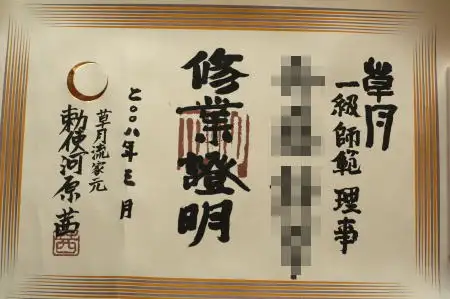 草月
一級師範理事
修業證明
二〇〇八年三月
草月流家元
勅使河原茜
茜